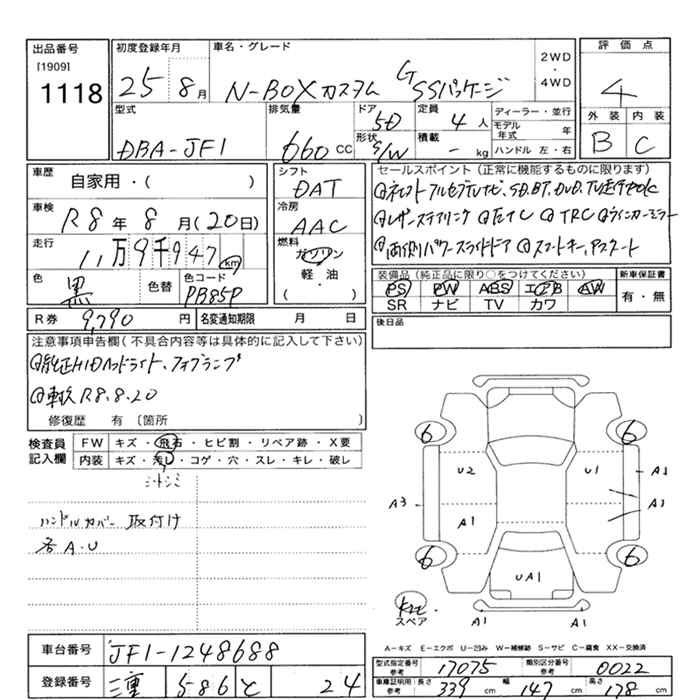 出品番号
[1909]
1118
初度登録年月
25年 8月
車名・グレード
N-BOXカスタム G SSパッケージ
2WD
・
4WD
評価点
4
外装 内装
B C
型式
DBA-JF1
排気量
660 CC
ドア
5D
形状
S/W
定員
4 人
積載
- kg
ディーラー・並行
モデル年式 年
ハンドル 左・右
車歴
自家用・( )
車検
R8年 8月(20日)
走行
11万9千947 km
色
黒
色替
色コード
PB85P
シフト
DAT
冷房
AAC
燃料
ガソリン
軽・油
( ・ )
セールスポイント(正常に機能するものに限ります)
フルセグナビ、SD、BT、DVD、TV
レザーステアリング TRC ウインカーミラー
両側パワースライドドア スマートキー、アスタート
装備品(純正品に限り○をつけてください)
PS PW ABS エアB AW
SR ナビ TV カワ
新車保証書
有・無
R券 9,790 円
名変通知期限 月 日
後日品
注意事項申告欄(不具合内容等は具体的に記入して下さい)
純正HIDヘッドライト、フォグランプ
R8.8.20
修復歴 有 〔箇所 〕
検査員
記入欄
FW キズ・飛石・ヒビ割・リペア跡・X要
内装 キズ・汚レ・コゲ・穴・スレ・キレ・破レ
シートシミ
ハンドルカバー取付け
各A・U
6 6
U2 U1 A1
A3 A1 A1
6 6
UA1
スペア
A1 A1
A-キズ E-エクボ U-凹み W-補修跡 S-サビ C-腐食 XX-交換済
車台番号 JF1-1248688
登録番号 三重 586 と 24
型式指定番号
参考 17075
類別区分番号
参考 0022
車庫証明用
参考 長さ 339 cm 幅 147 cm 高さ 178 cm